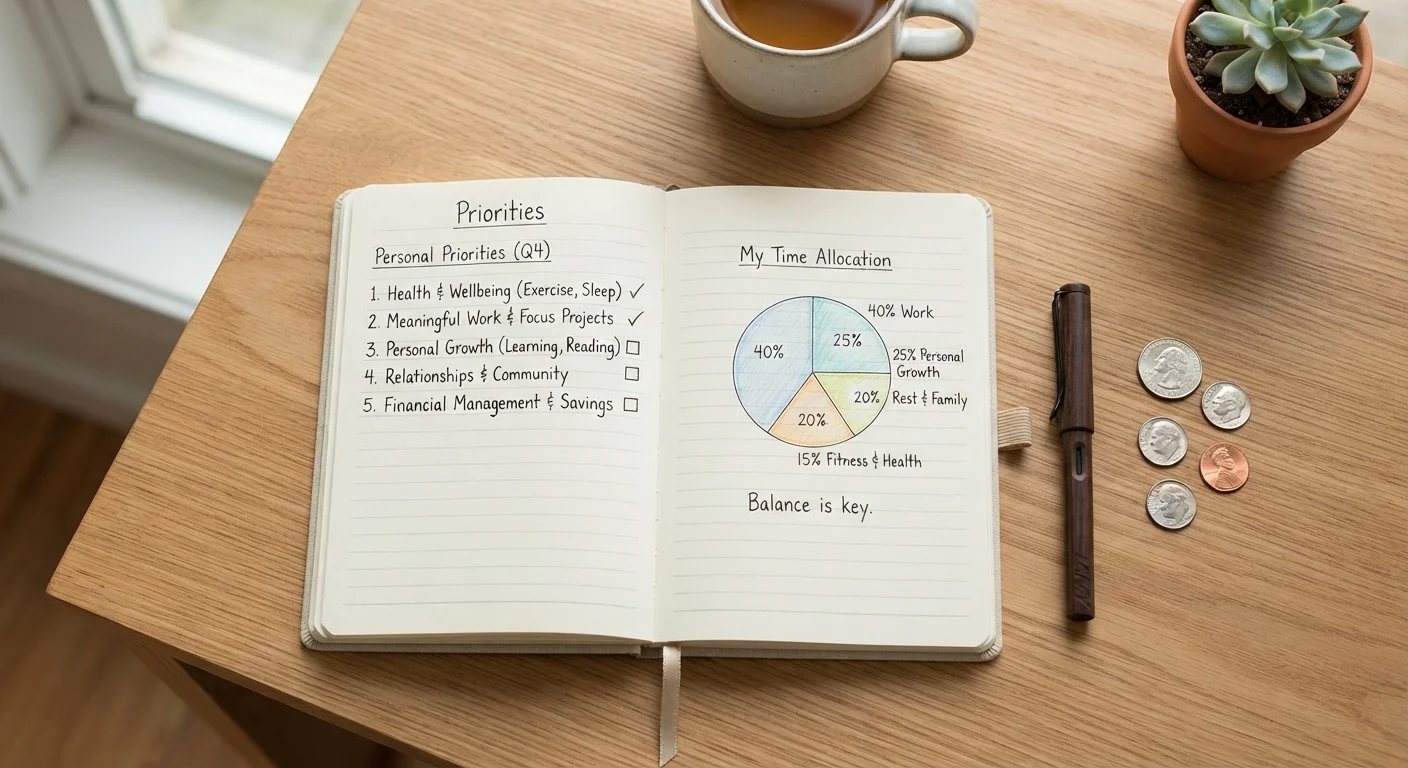 Priorities
Personal Priorities (Q4)
1. Health & Wellbeing (Exercise, Sleep) ✓
2. Meaningful Work & Focus Projects ✓
3. Personal Growth (Learning, Reading) ☐
4. Relationships & Community ☐
5. Financial Management & Savings ☐
My Time Allocation
40% Work
40%
25%
25% Personal
Growth
20% Rest & Family
20%
15% Fitness & Health
Balance is key.